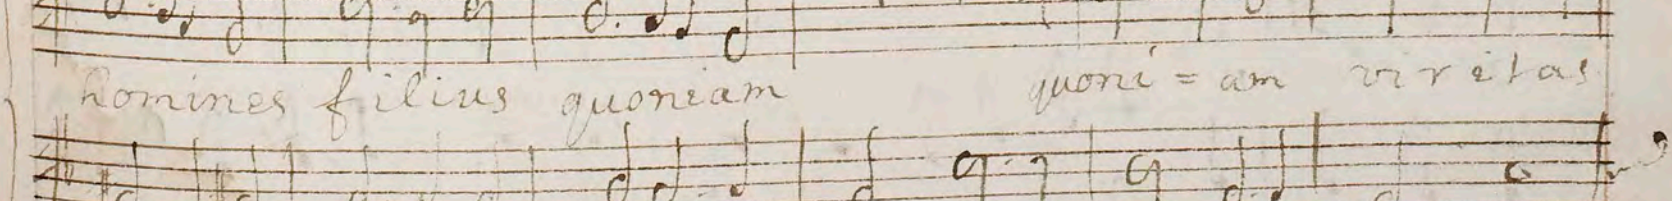 homines filius quoniam quoni = am viretas